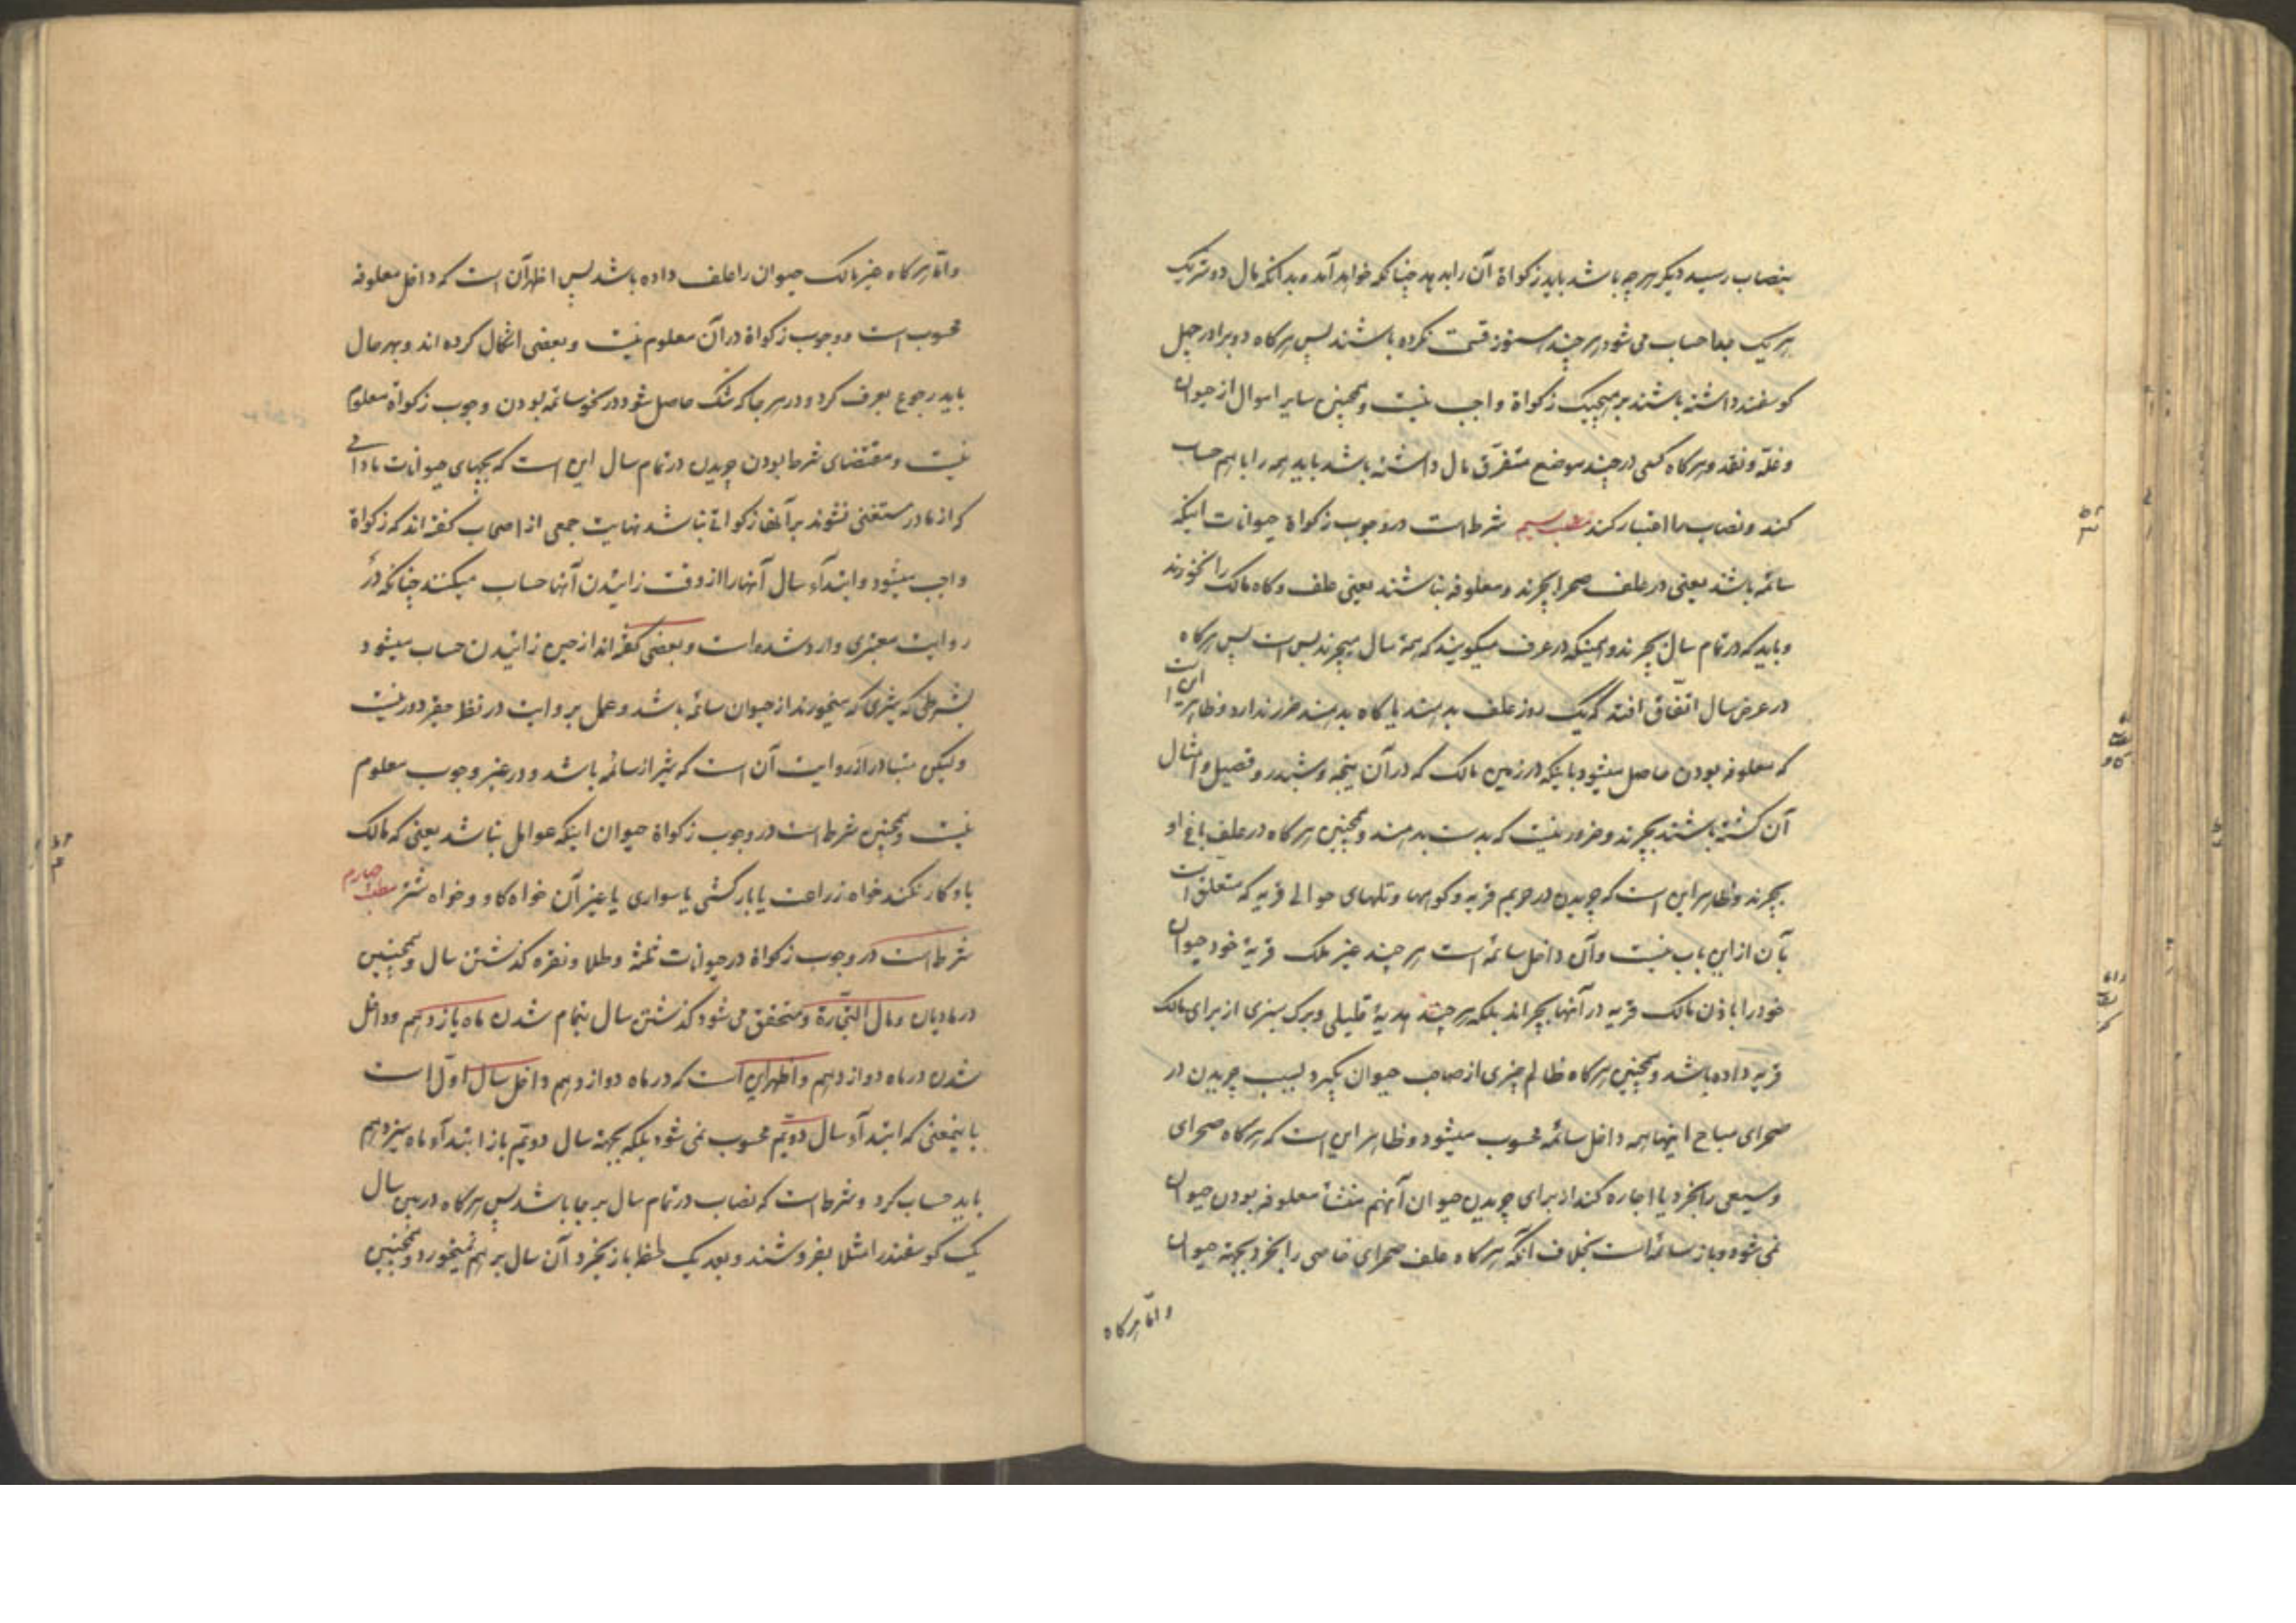 بنصاب رسید دیکر هر چه باشد باید زکواة آن را بدهد چنانکه خواهد آمد و بدانکه مال دو شریک
هر یک جدا حساب می شود هر چند هنوز قسمت نکرده باشند پس هرکاه دو برادر چهل
کوسفند داشته باشند بر هیچیک زکواة واجب نیست و همچنین سایر اموال از حیوان
و غلّه و نقد و هرکاه کسی در چند موضع متفرّق مال داشته باشد باید همه را با هم حساب
کند و نصاب را اعتبار کند مطلب سیم شرط است در وجوب زکواة حیوانات اینکه
سائمه باشند یعنی در علف صحرا بچرند و معلوفه نباشند یعنی علف و کاه مالک را نخورند
و باید که در تمام سال بچرند و همینکه در عرف میکویند که همهٔ سال میچرند بس است پس هرکاه
در عرض سال اتفاق افتد که یک روز علف بدهند یا کاه بدهند ضرر ندارد و ظاهر این است
که معلوفه بودن حاصل میشود باینکه در زمین مالک که در آن ینجه و شبدر و قصیل و امثال
آن کشته باشند بچرند و ضرور نیست که بدست بدهند و همچنین هرکاه در علف باغ او
بچرند و ظاهر این است که چریدن در حریم قریه و کوهها و تلهای حوالی قریه که متعلق است
بآن از این باب نیست و آن داخل سائمه است هر چند غیر ملک قریهٔ خود حیوان
خود را باذن مالک قریه در آنها بچراند بلکه هر چند هدیهٔ قلیلی و برک سبزی از برای مالک
قریه داده باشد و همچنین هرکاه ظالم چیزی از صاحب حیوان بگیرد بسبب چریدن در
صحرای مباح اینها همه داخل سائمه محسوب میشود و ظاهر این است که هرکاه صحرای
وسیعی را بخرد یا اجاره کند از برای چریدن حیوان آنهم منشأ معلوفه بودن حیوان
نمی شود و باز سائمه است بخلاف آنکه هرکاه علف صحرای خاصی را بخرد بجهة حیوان
و امّا هرکاه
و امّا هرکاه غیر مالک حیوان را علف داده باشد پس اظهر آن است که داخل معلوفه
محسوب است و وجوب زکواة در آن معلوم نیست و بعضی اشکال کرده اند و بهر حال
باید رجوع بعرف کرد و در هر جا که شک حاصل شود در نحو سائمه بودن وجوب زکواة معلوم
نیست و مقتضای شرط بودن چریدن در تمام سال این است که بچهای حیوانات مادامی
که از مادر مستغنی نشوند بر آنها زکواتی نباشد نهایت جمعی از اصحاب کفته اند که زکواة
واجب میشود و ابتدآء سال آنها را از وقت زائیدن آنها حساب میکنند چنانکه در
روایت معتبری وارد شده است و بعضی کفته اند از حین زائیدن حساب میشود
بشرطی که شیری که میخورند از حیوان سائمه باشد و عمل بروایت در نظر حقیر دور نیست
ولیکن متبادر از روایت آن است که شیر از سائمه باشد و در غیر وجوب معلوم
نیست و همچنین شرط است در وجوب زکواة حیوان اینکه عوامل نباشد یعنی که مالک
باو کار نکند خواه زراعت یا بارکشی یا سواری یا غیر آن خواه کاو و خواه شتر مطلب چهارم
شرط است در وجوب زکواة در حیوانات ثلثه و طلا و نقره کذشتن سال و همچنین
در مادیان و مال التجّارة و متحقق می شود کذشتن سال بتمام شدن ماه یازدهم و داخل
شدن در ماه دوازدهم و اظهر این است که در ماه دوازدهم داخل سال اول است
باینمعنی که ابتدآء سال دویّم محسوب نمی شود بلکه بجهة سال دویّم باز ابتدآء ماه سیزدهم
باید حساب کرد و شرط است که نصاب در تمام سال بر جا باشد پس هرکاه در بین سال
یک کوسفند را مثلا بفروشند و بعد یک لحظه باز بخرد آن سال بر هم میخورد و همچنین